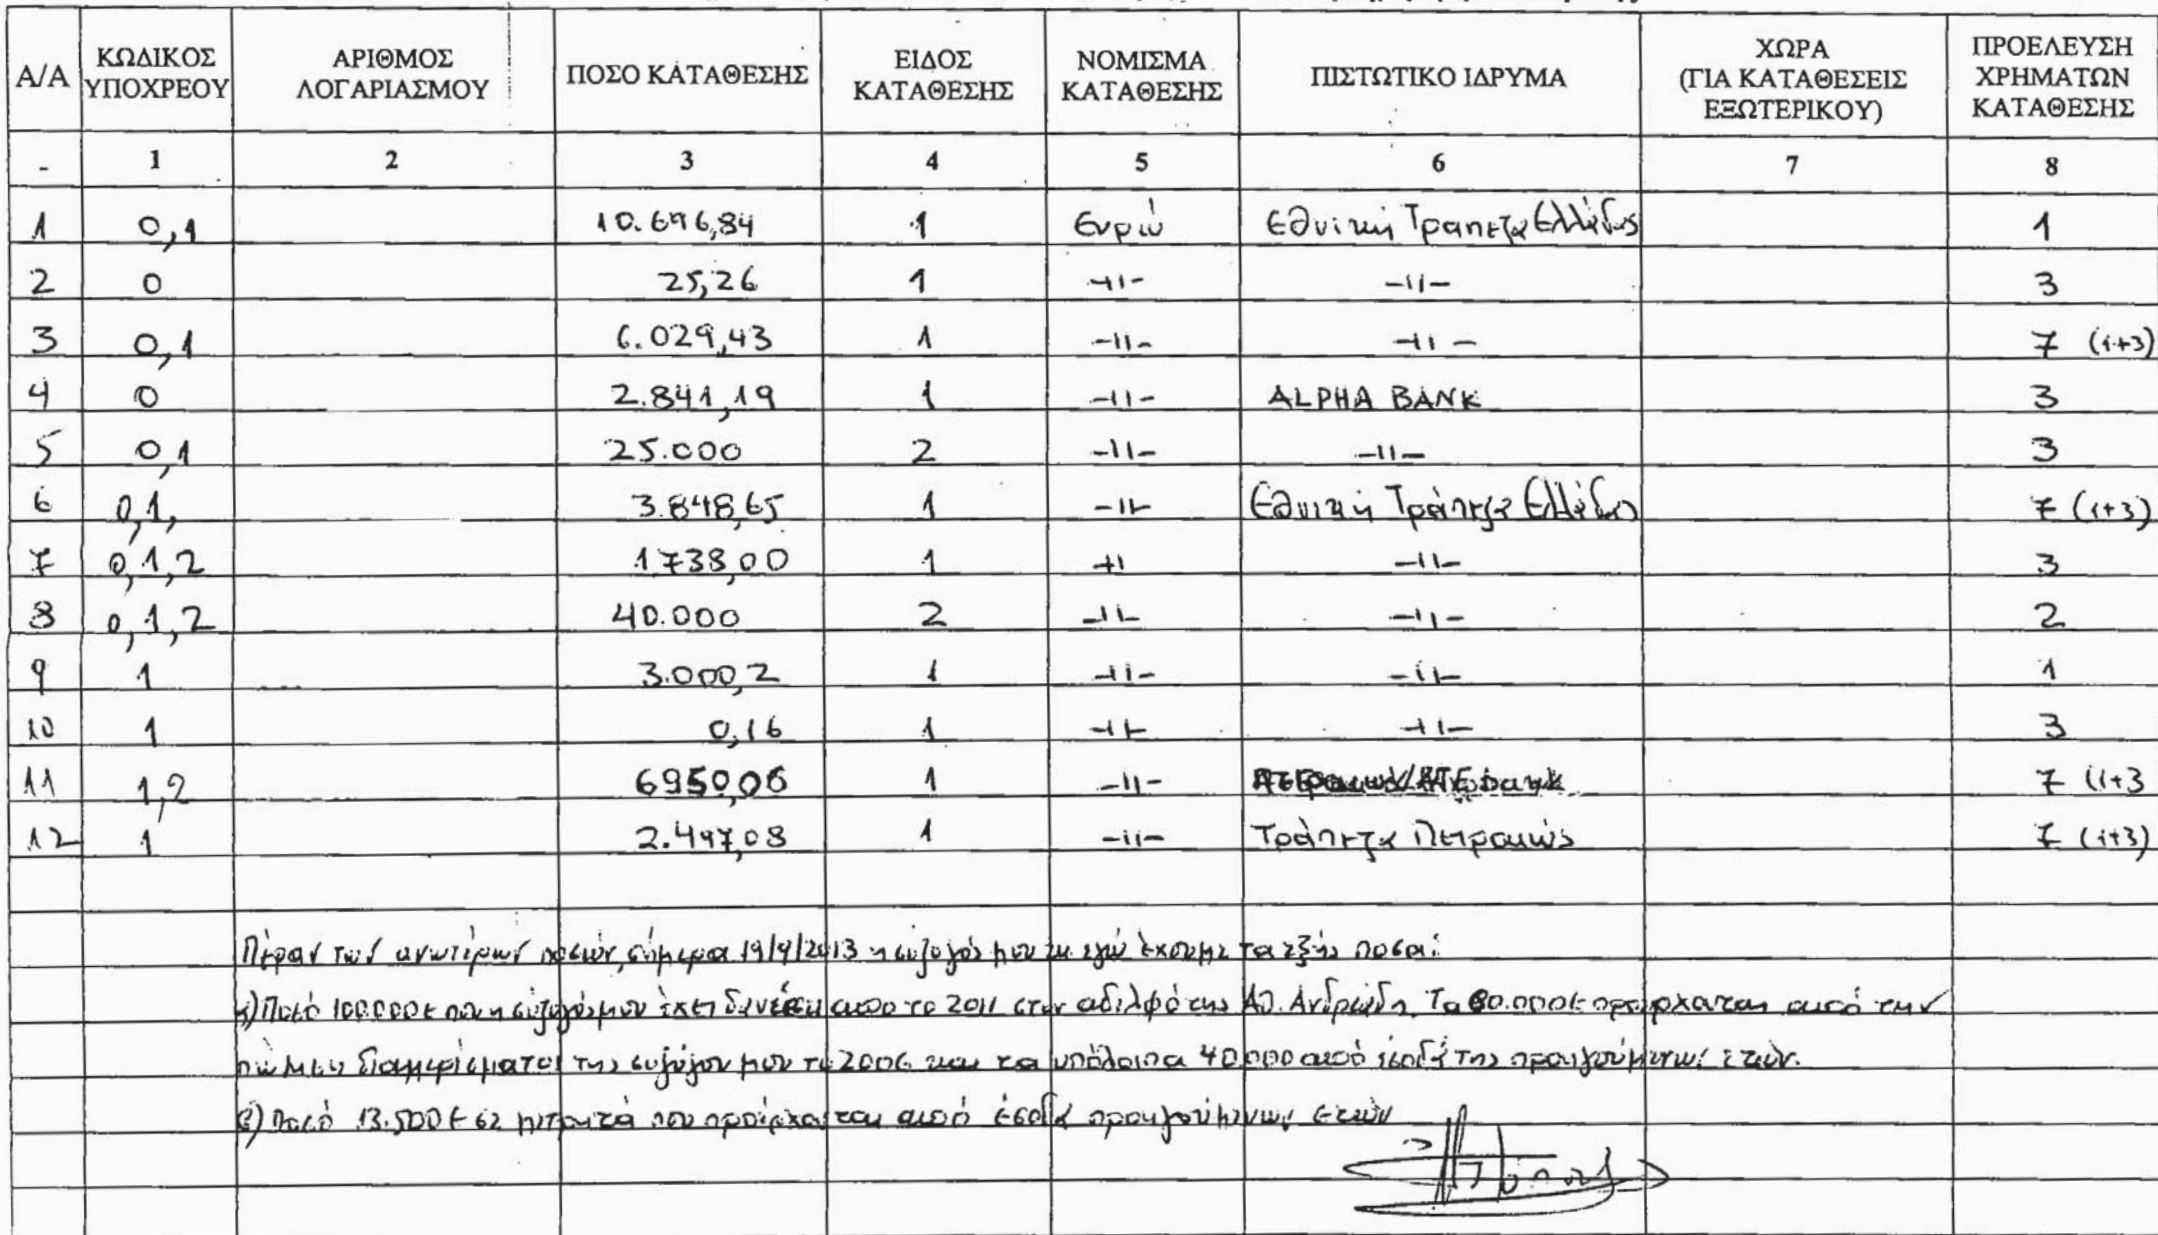 Α/Α ΚΩΔΙΚΟΣ ΥΠΟΧΡΕΟΥ ΑΡΙΘΜΟΣ ΛΟΓΑΡΙΑΣΜΟΥ ΠΟΣΟ ΚΑΤΑΘΕΣΗΣ ΕΙΔΟΣ ΚΑΤΑΘΕΣΗΣ ΝΟΜΙΣΜΑ ΚΑΤΑΘΕΣΗΣ ΠΙΣΤΩΤΙΚΟ ΙΔΡΥΜΑ ΧΩΡΑ (ΓΙΑ ΚΑΤΑΘΕΣΕΙΣ ΕΞΩΤΕΡΙΚΟΥ) ΠΡΟΕΛΕΥΣΗ ΧΡΗΜΑΤΩΝ ΚΑΤΑΘΕΣΗΣ
- 1 2 3 4 5 6 7 8
1 0,1 10.696,84 1 Ευρώ Εθνική Τραπεζα Ελλάδος 1
2 0 25,26 1 -11- -11- 3
3 0,1 6.029,43 1 -11- -11- 7 (1+3)
4 0 2.841,19 1 -11- ALPHA BANK 3
5 0,1 25.000 2 -11- -11- 3
6 0,1, 3.848,65 1 -11- Εθνική Τράπεζα Ελλάδος 7 (1+3)
7 0,1,2 1738,00 1 -11- -11- 3
8 0,1,2 40.000 2 -11- -11- 2
9 1 3.000,2 1 -11- -11- 1
10 1 0,16 1 -11- -11- 3
11 1,2 6950,06 1 -11- 7 (1+3
12 1 2.497,08 1 -11- Τράπεζα Πειραιώς 7 (1+3)
Πέραν των ανωτέρων ποσών, σήμερα 19/9/2013 η σύζυγός μου κι εγώ έχουμε τα εξής ποσα:
Ποσό 100.000€ που η σύζυγός μου έχει δανείσει απο το 2011 στον αδελφό της Ανδρεάδη. Τα 60.000€ προέρχονται από την
πώληση διαμερίσματος της συζύγου μου το 2006 και τα υπόλοιπα 40.000 από έσοδα της προηγούμενων ετών.
Ποσό 13.500€ σε μετρητά που προέρχονται από έσοδα προηγούμενων ετών